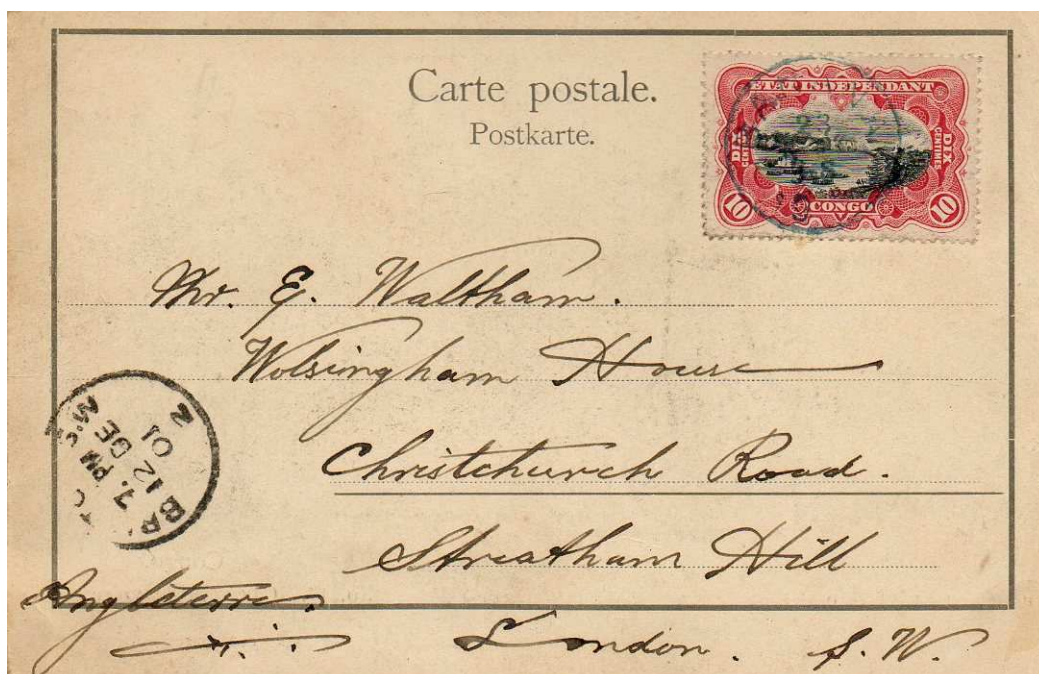 Carte postale.
Postkarte.
ETAT INDEPENDANT
DIX CENTIMES
DIX CENTIMES
10
CONGO
10
23
Mr. E. Waltham.
Wolsingham House
Christchurch Road.
Streatham Hill
Angleterre.
London. S. W.
BR
S.W
7. PM
B 12 DE
01
2